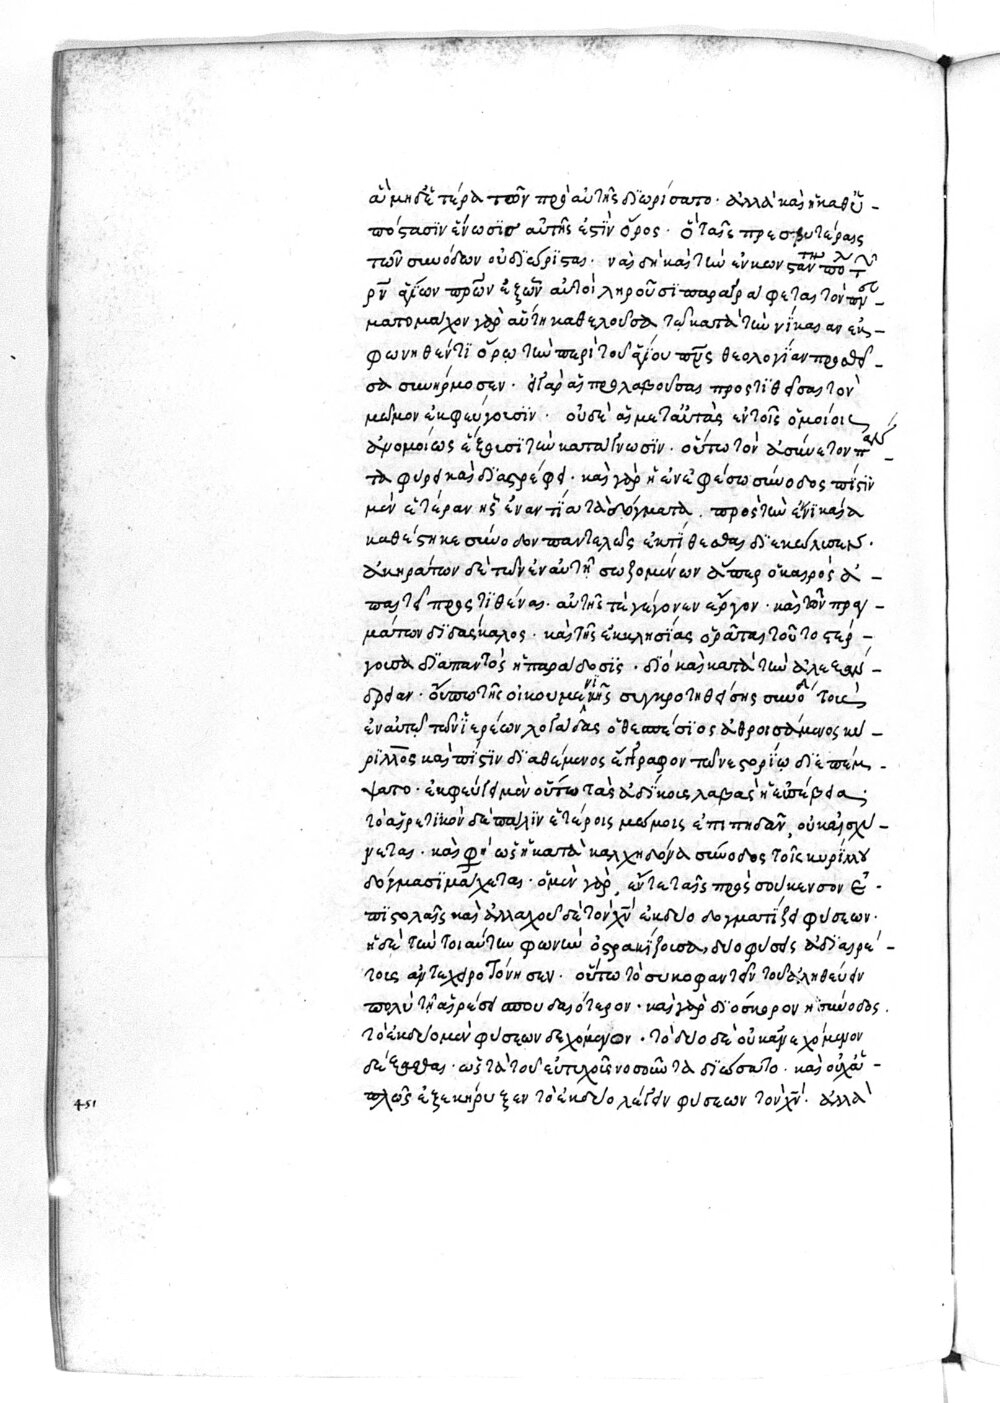 ἃ μηδὲ τέρα τῶν πρὸ αὐτῆς διωρίσατο· ἀλλὰ καὶ ἡ καθ' ὑ-
πόστασιν ἕνωσις αὐτῆς ἐστὶν ὅρος· ὃ ταῖς πρεσβυτέραις
τῶν συνόδων οὐ διώρισται· ναὶ δὴ καὶ τῶν ἐν κων
ἁγίων πρων ἐξ ὧν αὐτοὶ ληροῦσι παραγράφεται τὸν πν-
ματομάχον γὰρ αὕτη καθελοῦσα τῷ κατὰ τὴν νίκαιαν ἐκ-
φωνηθέντι ὅρῳ τὴν περὶ τοῦ ἁγίου πνς θεολογίαν προσθεῖ-
σα συνήρμοσεν· εἰ γὰρ αἱ προλαβοῦσαι προστιθεῖσαι τὸν
μῶμον ἐκφεύγουσιν· οὐδὲ αἱ μετ' αὐτὰς ἐν τοῖς ὁμοίοις
ἀνομοίως ἕξουσι τὴν κατάγνωσιν· οὕτω τὸν ἀσύνετον
τα φύρει καὶ διαστρέφει· καὶ γὰρ ἡ ἐν ἐφέσω σύνοδος πίστιν
μὲν ἑτέραν ἧς ἐναντία τὰ δόγματα, πρὸς τὴν ἐν νικαία
καθέστηκε σύνοδον παντελῶς ἐκτίθεσθαι διεκώλυσεν·
ἀκηράτων δὲ τῶν ἐν αὐτῇ σωζομένων ἅπερ ὁ καιρὸς ἀ-
παιτεῖ προστιθέναι· αὐτῆς τε γέγονεν ἔργον· καὶ τῶν πραγ-
μάτων διδάσκαλος· καὶ τῆς ἐκκλησίας ὁρᾶται τοῦτο στέρ-
γουσα διαπαντὸς ἡ παράδοσις· διὸ καὶ κατὰ τὴν ἀλεξάν-
δρειαν· οὔπω τῆς οἰκουμενικῆς συγκροτηθείσης συνόδου τοῖς
ἐν αὐτῇ τῶν ἱερέων λογάδας ὁ θεσπέσιος ἀθροισάμενος κύ-
ριλλος καὶ πίστιν διαθέμενος ἔγγραφον τῷ νεστορίῳ διεπέμ-
ψατο· ἐκφεύγει μὲν οὕτω τὰς ἀδίκους λαβὰς ἡ εὐσέβεια·
τὸ αἱρετικὸν δὲ πάλιν ἑτέροις μώμοις ἐπιπηδᾶν, οὐκ αἰσχύ-
νεται· καὶ φησὶν ὡς ἡ κατὰ καλχηδόνα σύνοδος τοῖς κυρίλλου
δόγμασι μάχεται· ὁ μὲν γὰρ, ἔν τε ταῖς πρὸς σούκενσον ἐ-
πιστολαῖς καὶ ἀλλαχοῦ δὲ τὸν χν ἐκ δύο δογματίζει φύσεων·
ἡ δὲ τὴν τοιαύτην φωνὴν ὀστρακίζουσα, δύο φύσεις ἀδιαιρέ-
τοις ἀντεχειροτόνησεν· οὕτω τὸ συκοφαντεῖν τοῦ ἀληθεύειν
πολὺ τῇ αἱρέσει σπουδαιότερον· καὶ γὰρ διόσκορον ἡ σύνοδος
τὸ ἐκ δύο μὲν φύσεων δεχόμενον· τὸ δύο δὲ οὐκ ἀνεχόμενον
δέξασθαι· ὡς τὰ τοῦ εὐτυχοῦς νοσοῦντα διώσατο· καὶ οὐχ ἁ-
πλῶς ἐξεκήρυξεν τὸ ἐκ δύο λέγειν φύσεων τὸν χν· ἀλλὰ
451